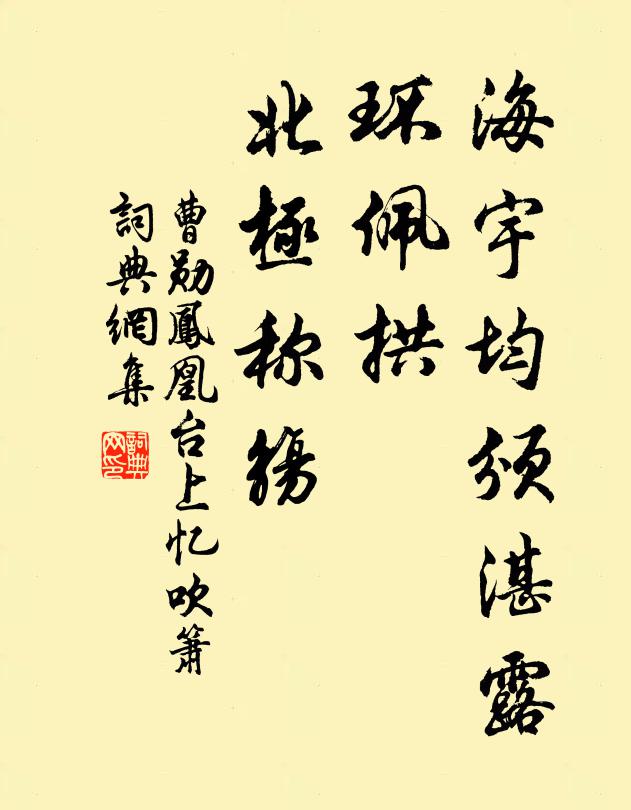 海宇均颁湛露
环佩拱
北極称觴
曹勋鳳凰台上忆吹箫
詞典網集
詞典网印